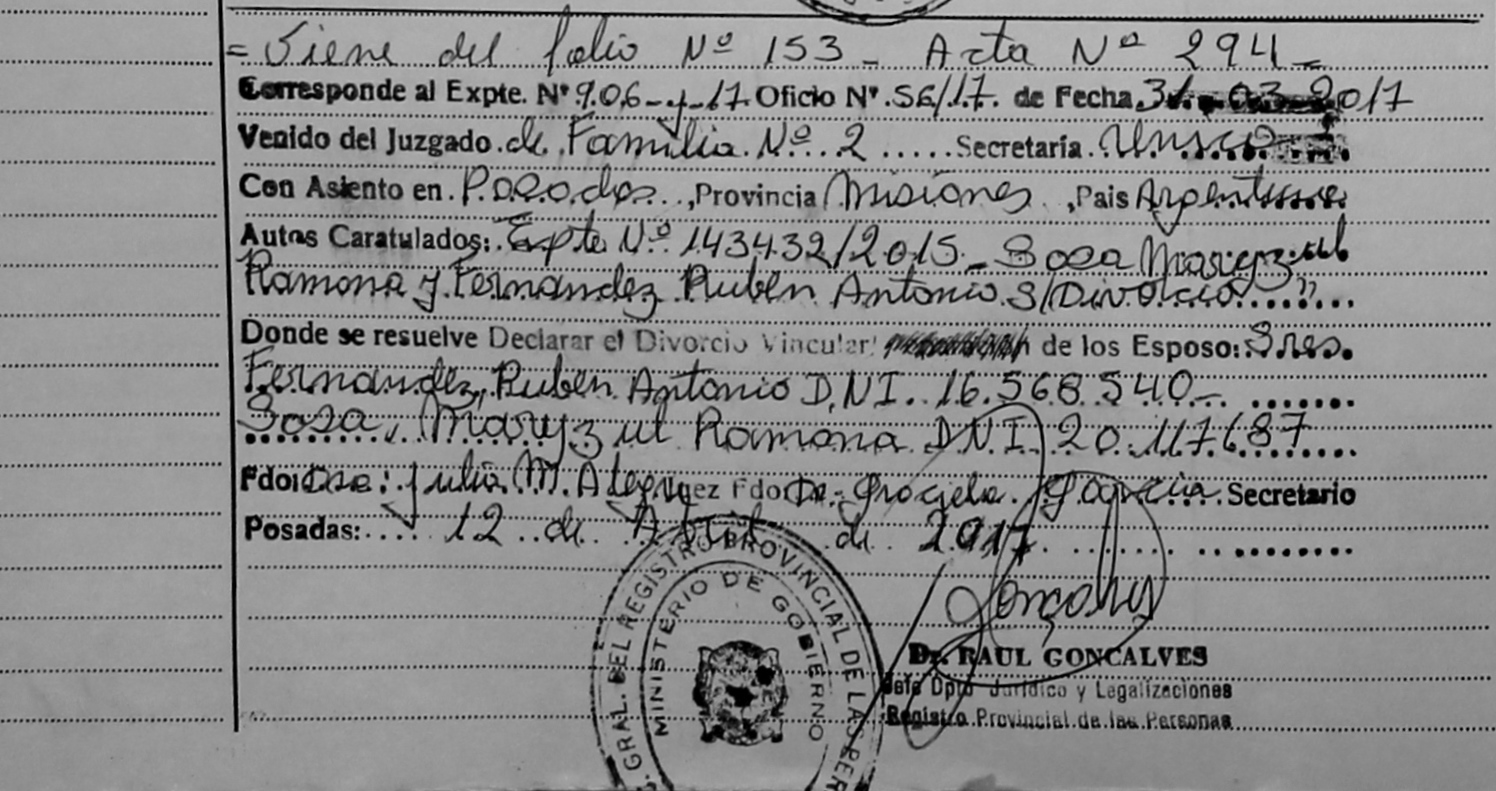 = Viene del folio Nº 153 - Acta Nº 294 -
Corresponde al Expte. Nº 906-y-17 Oficio Nº 56/17 de Fecha 31-03-2017
Venido del Juzgado de Familia Nº 2 ..... Secretaría Unica
Con Asiento en Posadas, Provincia Misiones, Pais Argentina
Autos Caratulados: Expte Nº 143432/2015 - Sosa Maryzul
Ramona y Fernandez Ruben Antonio S/Divorcio"
Donde se resuelve Declarar el Divorcio Vincular de los Esposo: Sres.
Fernandez, Ruben Antonio D.N.I. 16.568.540 -
Sosa, Maryzul Ramona D.N.I 20.117.687
Fdo: Dra: Julia M. Alegre Juez Fdo Dra. Graciela Garcia Secretario
Posadas: 12 de Abril de 2017
GRAL. DEL REGISTRO PROVINCIAL DE LAS PER
MINISTERIO DE GOBIERNO
Gonçalves
Dr. RAUL GONCALVES
Jefe Dpto Jurídico y Legalizaciones
Registro Provincial de las Personas